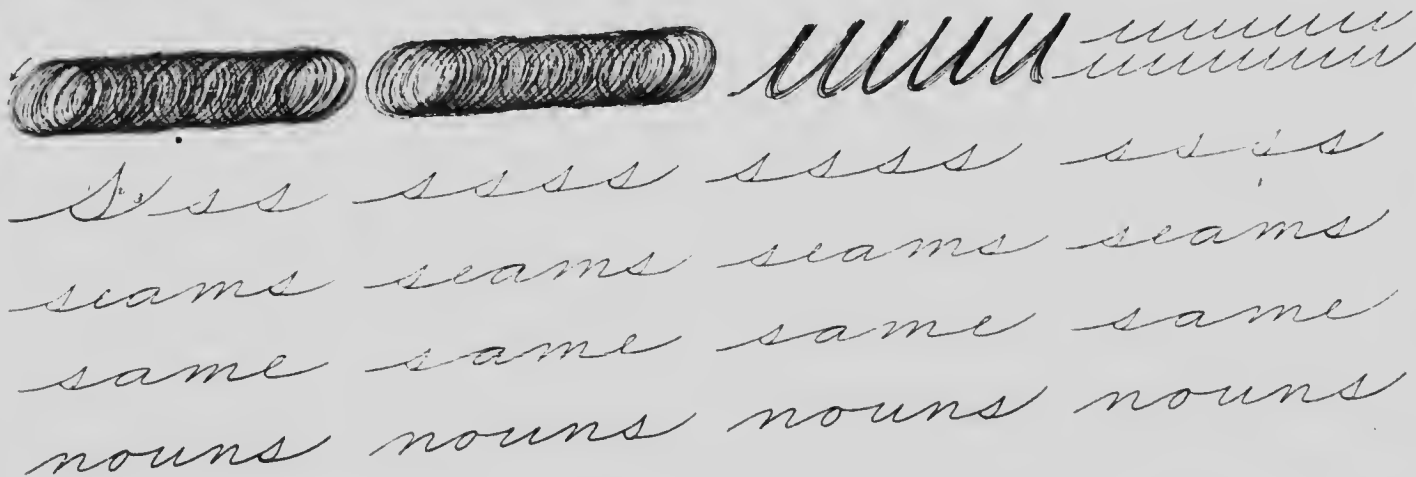 s s s ssss ssss ssss
seams seams seams seams
same same same same
nouns nouns nouns nouns